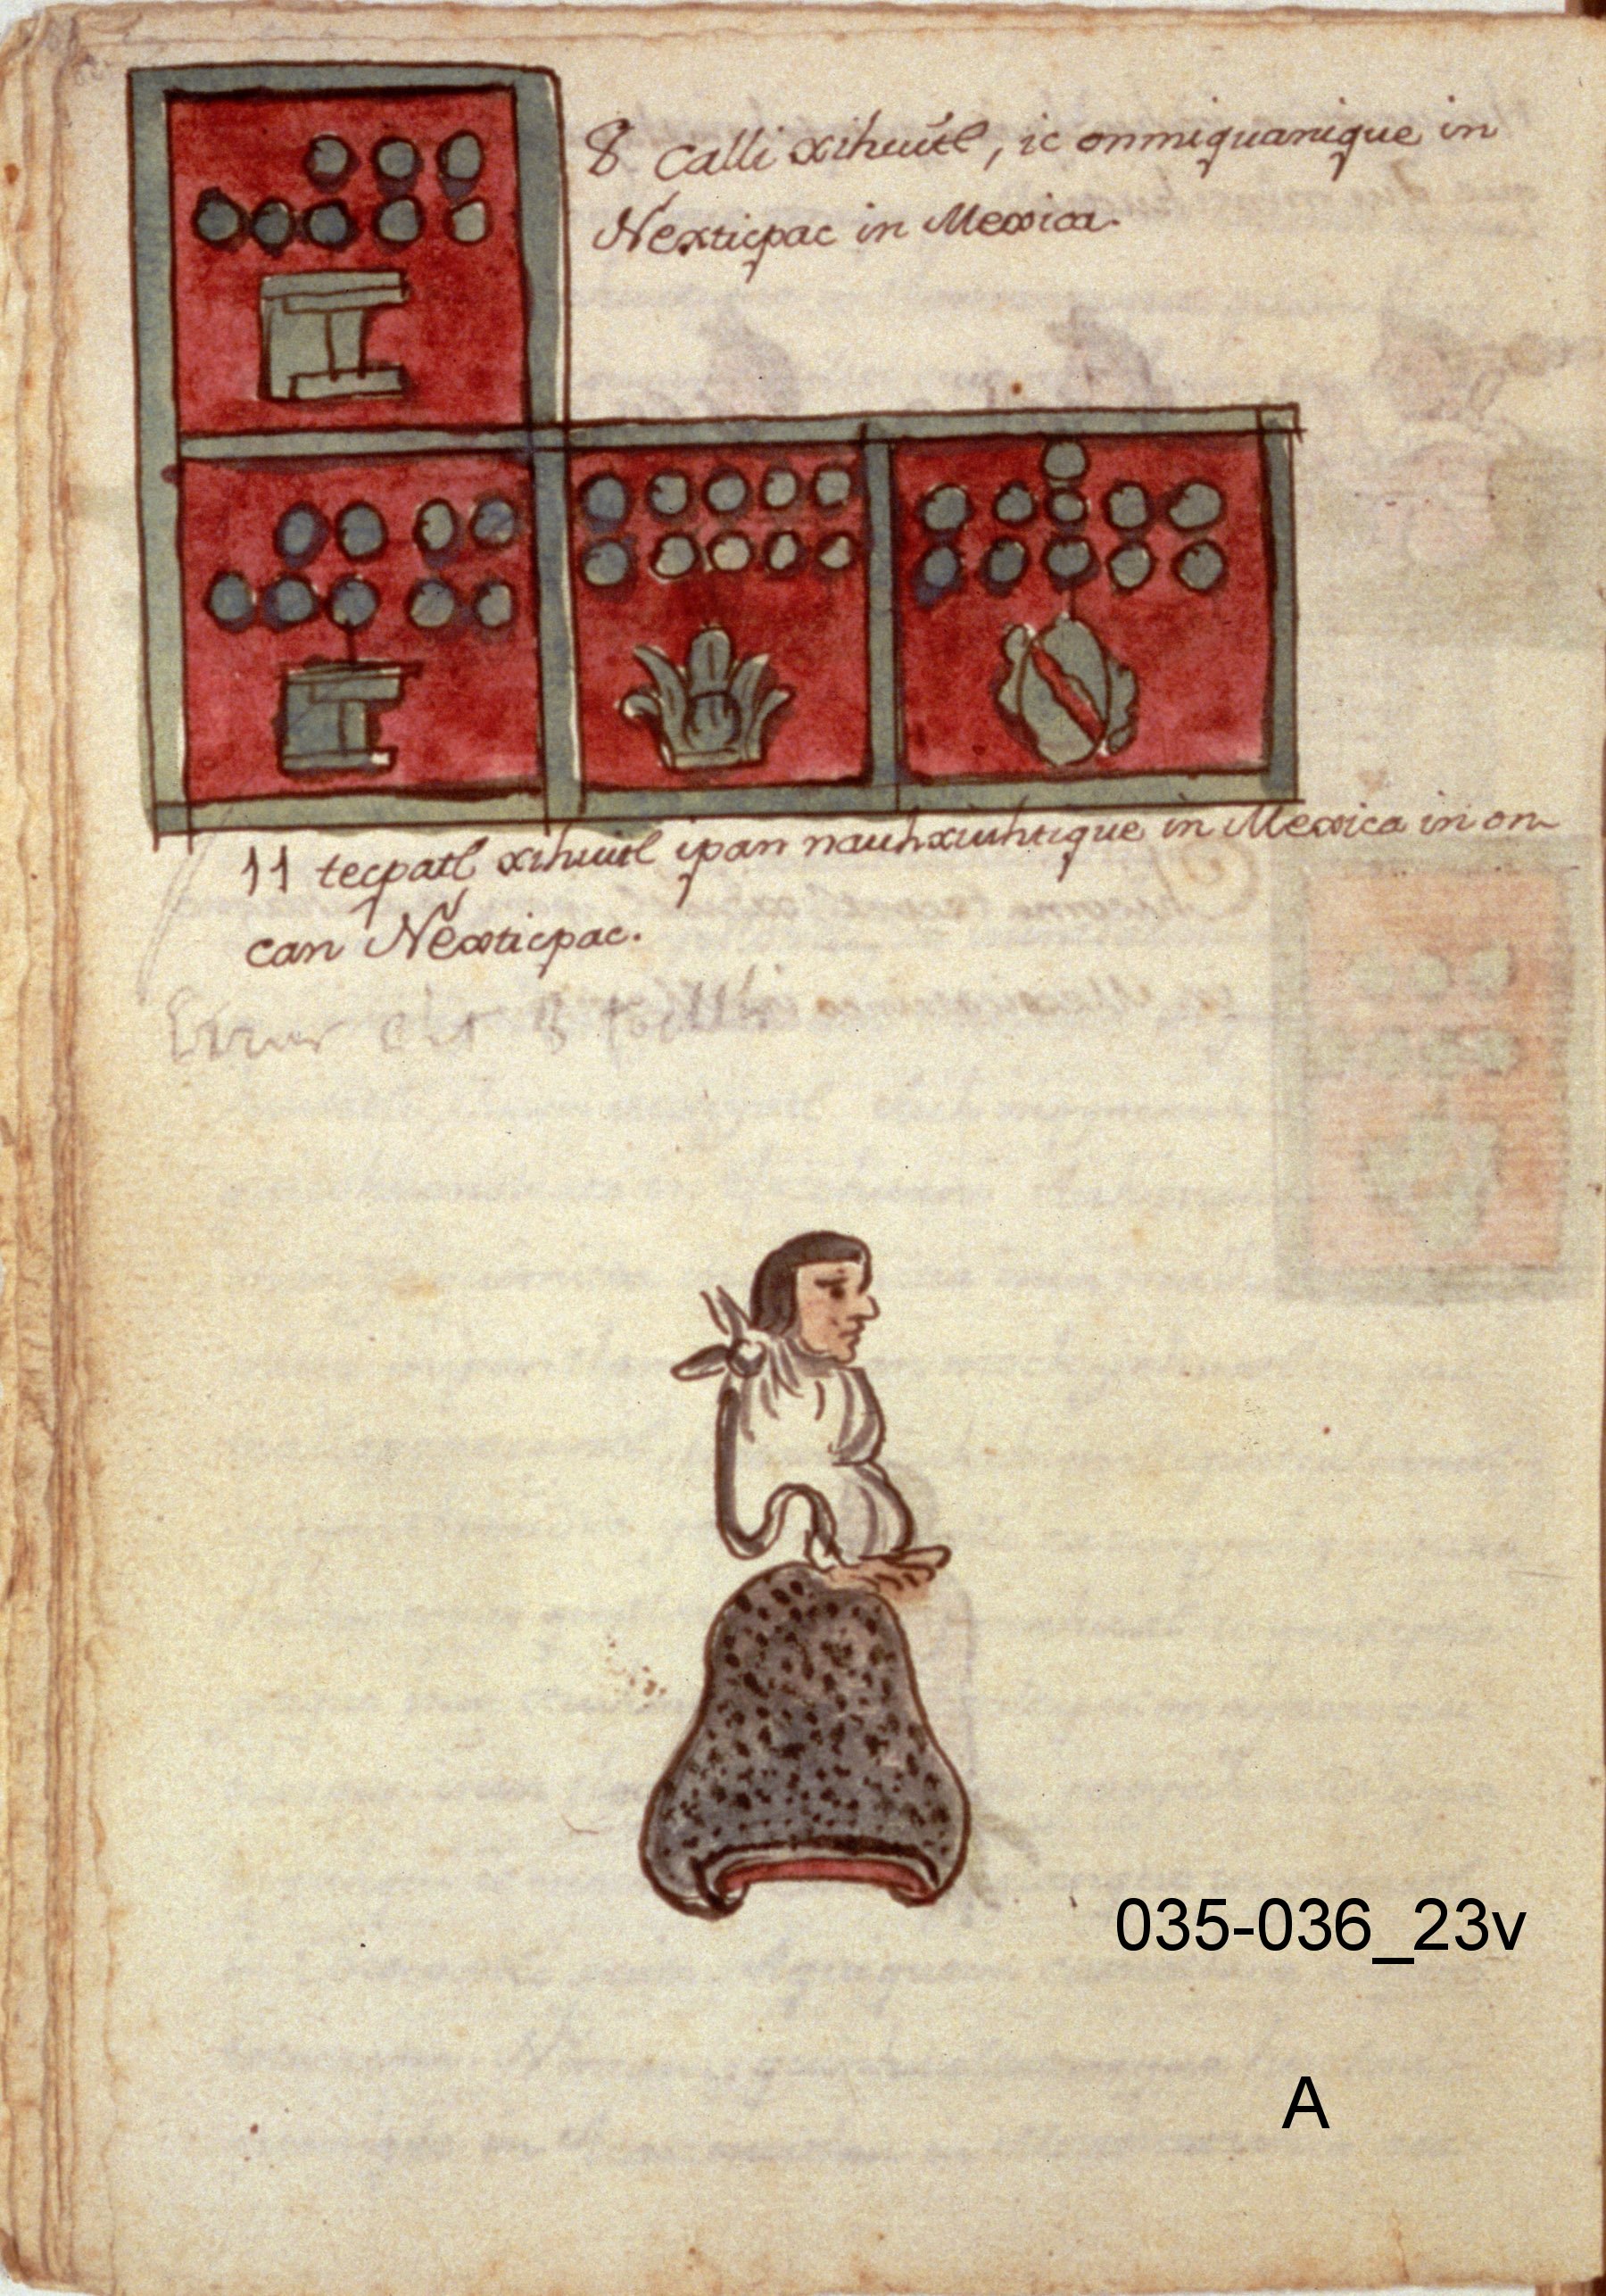 8 calli xihuitl, ic onmiquanique in
Nexticpac in Mexica.
11 tecpatl xihuitl ipan nauhxiuhtique in Mexica in on-
can Nexticpac.
Error est
035-036_23v
A